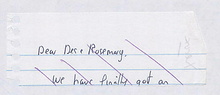 Dear Des & Rosemary,
We have finally got an